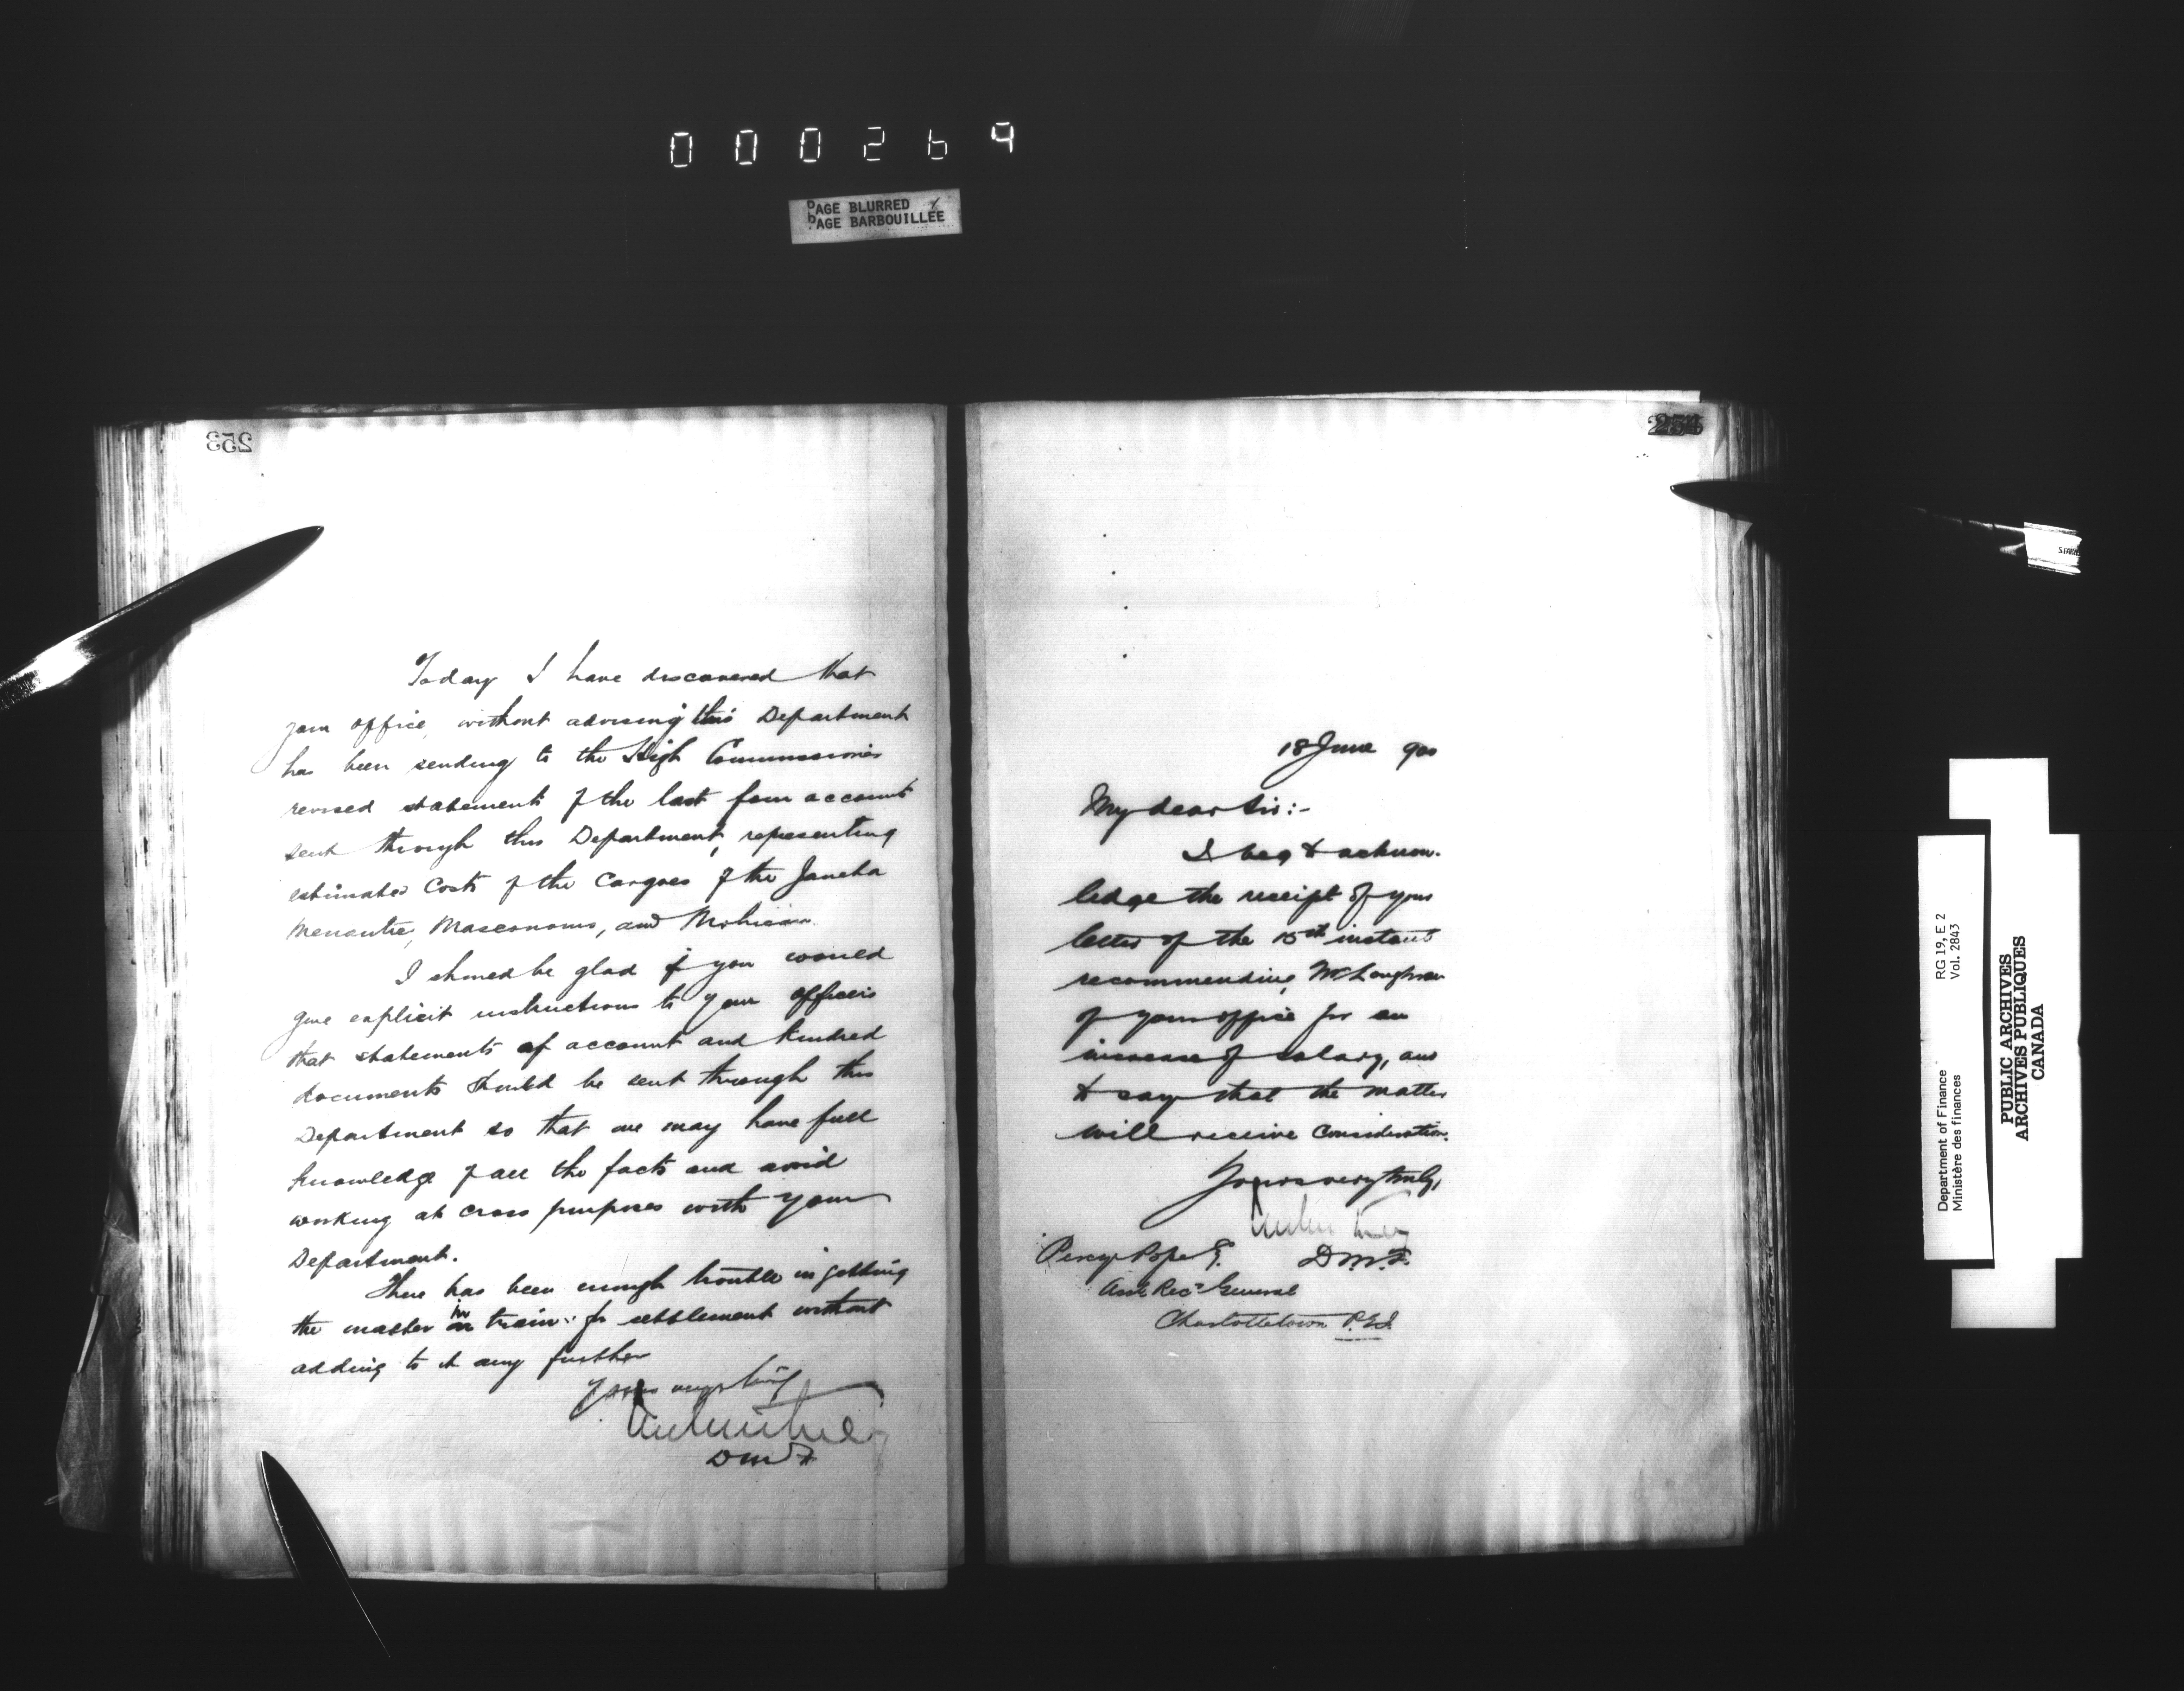 000269
PAGE BLURRED
PAGE BARBOUILLÉE
253
Today I have discovered that
your office, without advising this Department
has been sending to the High Commissioner
revised statements of the last four accounts
sent through this Department, representing
estimated costs of the cargoes of the Janeta
Menantic, Masconomo, and Mohican.
I should be glad if you would
give explicit instructions to your officers
that statements of account and kindred
documents should be sent through this
Department so that we may have full
knowledge of all the facts and avoid
working at cross purposes with your
Department.
There has been enough trouble in getting
the matter in train for settlement without
adding to it any further
Yours very truly
DMF
254
18 June 900
My dear Sir:-
I beg to acknow-
ledge the receipt of your
letter of the 15th instant
recommending Mr
of your office for an
increase of salary, and
to say that the matter
will receive consideration.
Yours very truly,
D.M.F.
Percy Pope E.
Asst Rec General
Charlottetown P.E.I.
RG 19, E 2
Vol. 2843
Department of Finance
Ministère des finances
PUBLIC ARCHIVES
ARCHIVES PUBLIQUES
CANADA